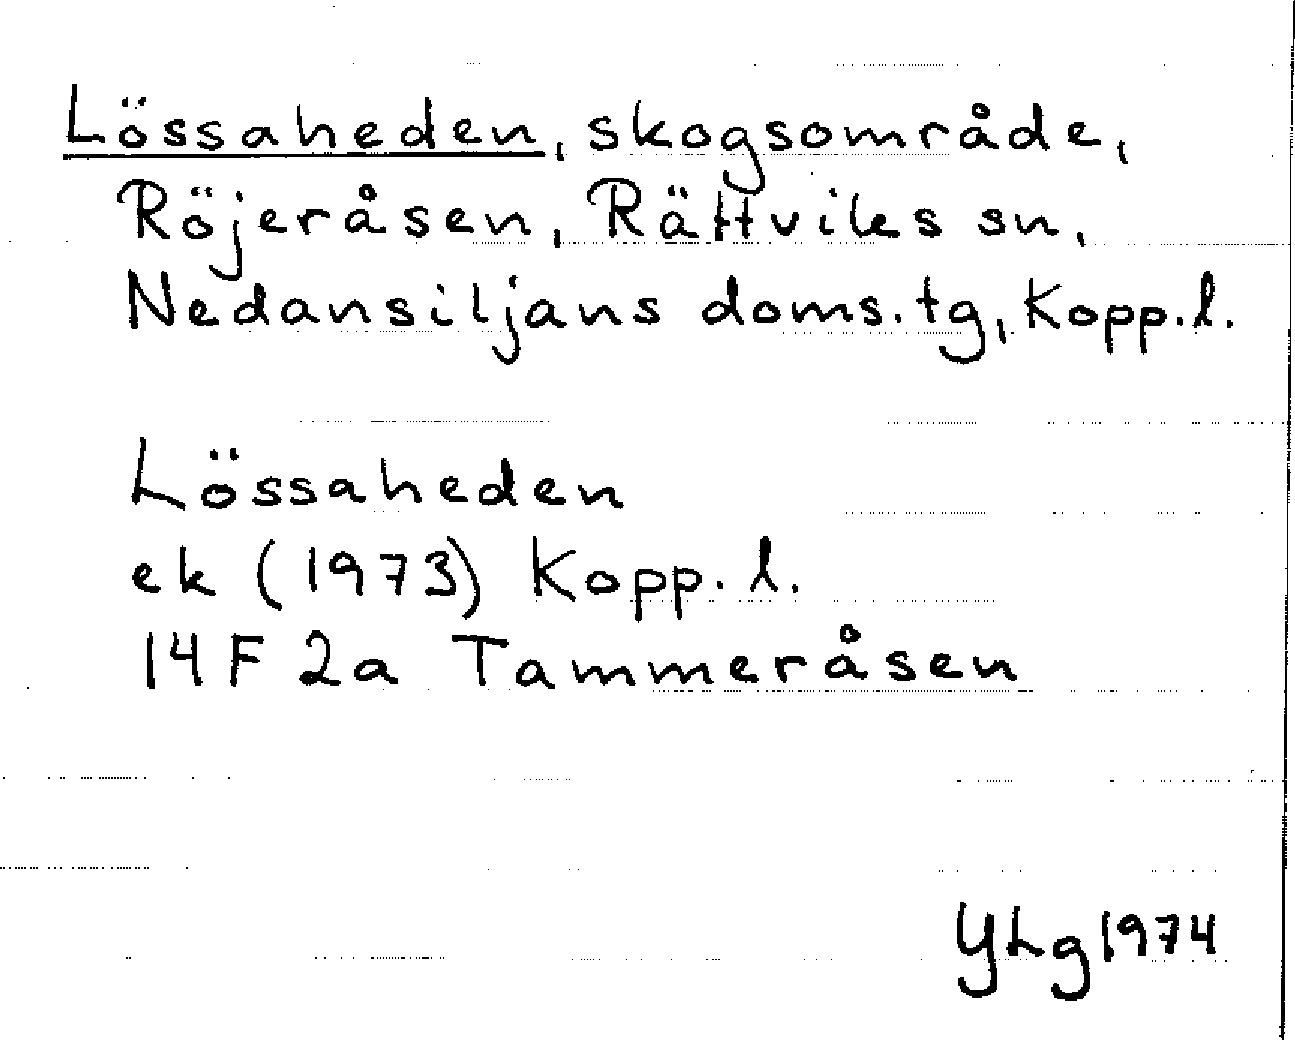 Lössaheden, skogsområde,
Röjeråsen, Rättviks sn,
Nedansiljans doms.tg, Kopp.l.
Lössaheden
ek (1973) Kopp.l.
14F 2a Tammeråsen
YLg 1974